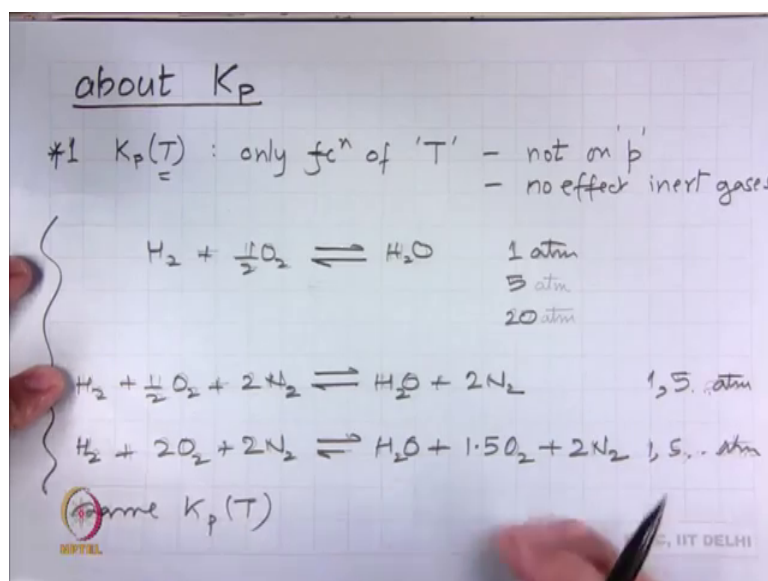 about Kp
*1 Kp(T) : only fcⁿ of 'T' - not on 'p'
- no effect inert gases
H₂ + 1/2 O₂ ⇌ H₂O 1 atm
5 atm
20 atm
H₂ + 1/2 O₂ + 2N₂ ⇌ H₂O + 2N₂ 1,5. atm
H₂ + 2O₂ + 2N₂ ⇌ H₂O + 1.5O₂ + 2N₂ 1,5.. atm
same Kp(T)
NPTEL
IIT DELHI